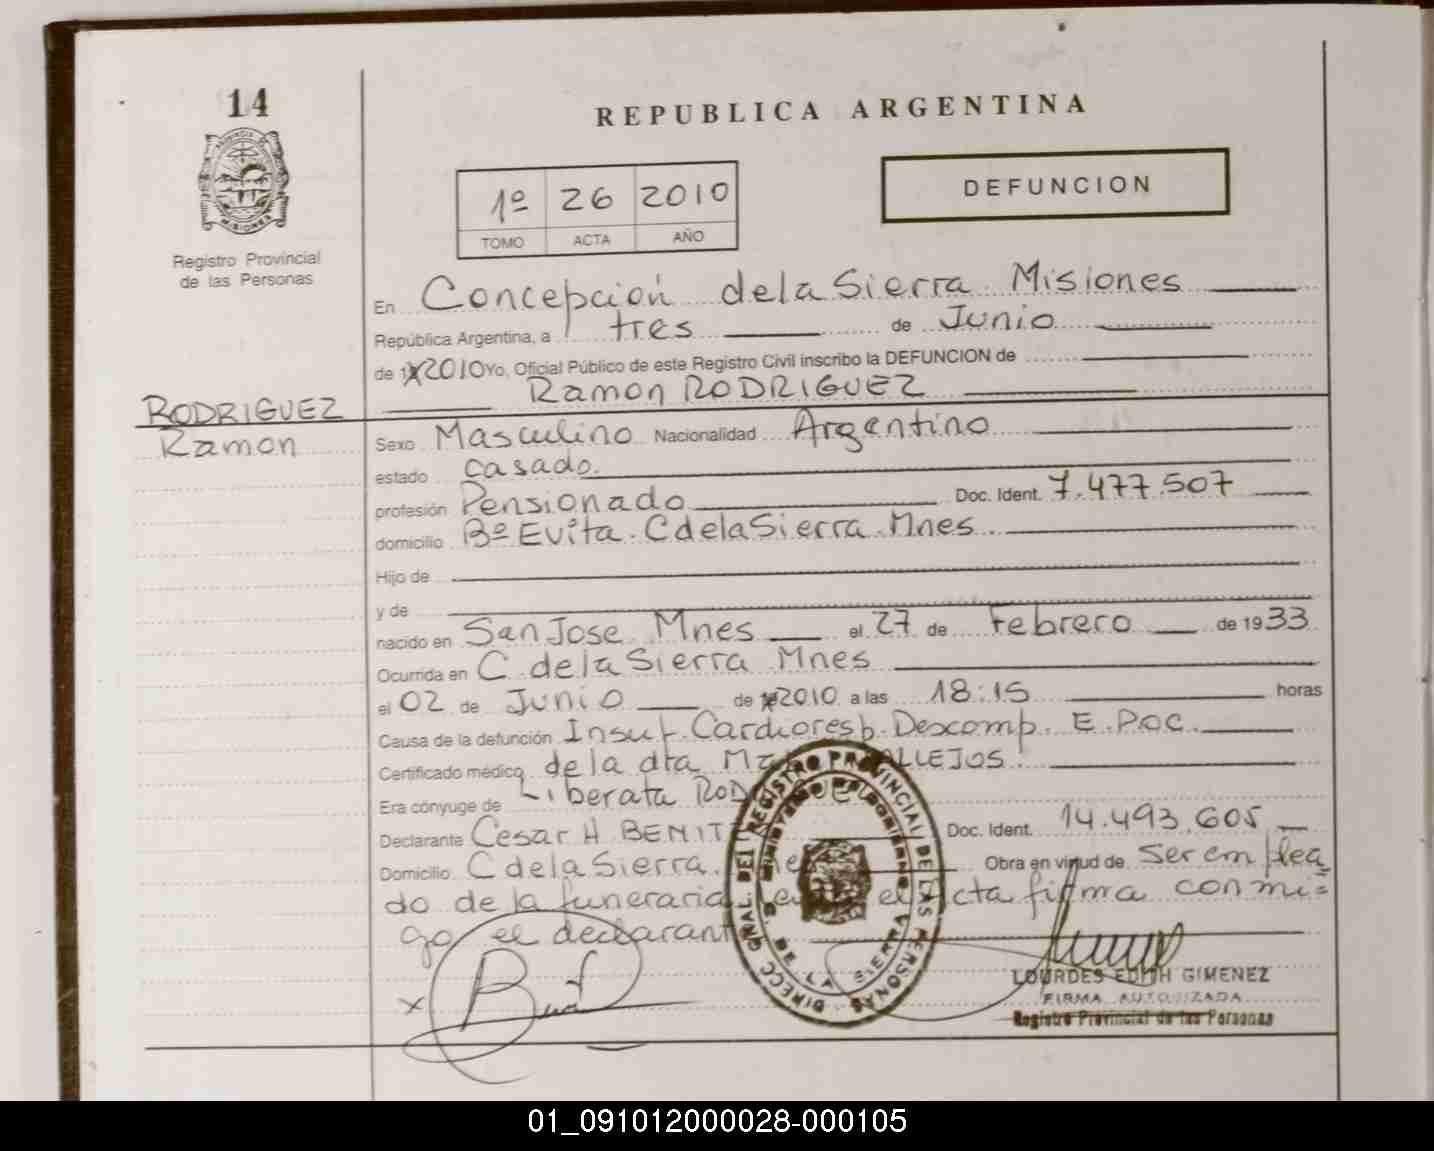 14
REPUBLICA ARGENTINA
DEFUNCION
1º 26 2010
TOMO ACTA AÑO
Registro Provincial
de las Personas
En Concepción de la Sierra Misiones
República Argentina, a tres de Junio
de 2010 Yo, Oficial Público de este Registro Civil inscribo la DEFUNCION de
Ramon RODRIGUEZ
RODRIGUEZ
Ramon
Sexo Masculino Nacionalidad Argentino
estado casado.
profesión Pensionado Doc. Ident. 7.477.507
domicilio Bº Evita. C de la Sierra. Mnes
Hijo de
y de
nacido en San Jose Mnes el 27 de Febrero de 1933
Ocurrida en C. de la Sierra Mnes
el 02 de Junio de 2010 a las 18:15 horas
Causa de la defunción Insuf. Cardioresp. Descomp. E.P.O.C.
Certificado médico de la dra VALLEJOS
Era cónyuge de Liberata
Declarante Cesar H Doc. Ident. 14.493.605
Domicilio C de la Sierra. Obra en virtud de ser emplea
do de la funeraria el acta firma conmi=
go el declarante
x
DIRECC. GRAL. DEL REGISTRO PROVINCIAL DE LAS PERSONAS
DE LA SIERRA
LOURDES EDITH GIMENEZ
FIRMA AUTORIZADA
Registro Provincial de las Personas
01_091012000028-000105